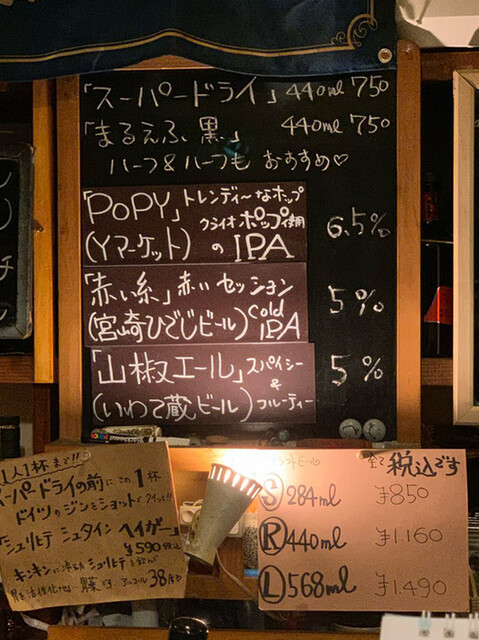 「スーパードライ」440ml 750
「まるえふ 黒」 440ml 750
ハーフ&ハーフも おすすめ♡
「POPY」トレンディ〜なホップ
クライオポップ使用
(Yマーケット) の IPA
6.5%
「赤い糸」赤い セッション
(宮崎ひでじビール) Cold IPA
5%
「山椒エール」スパイシー
&
(いわて蔵ビール) フルーティー
5%
1人1杯まで!!
スーパードライの前に、この1杯
ドイツのジンをショットでクイッ!!
「シュリヒテ シュタイン ヘイガー」
¥590税込
キンキンに冷えた シュリヒテを飲んで
アルコール 38度
クラフトビール 全て税込です
Ⓢ 284ml ¥850
Ⓡ 440ml ¥1.160
Ⓛ 568ml ¥1.490